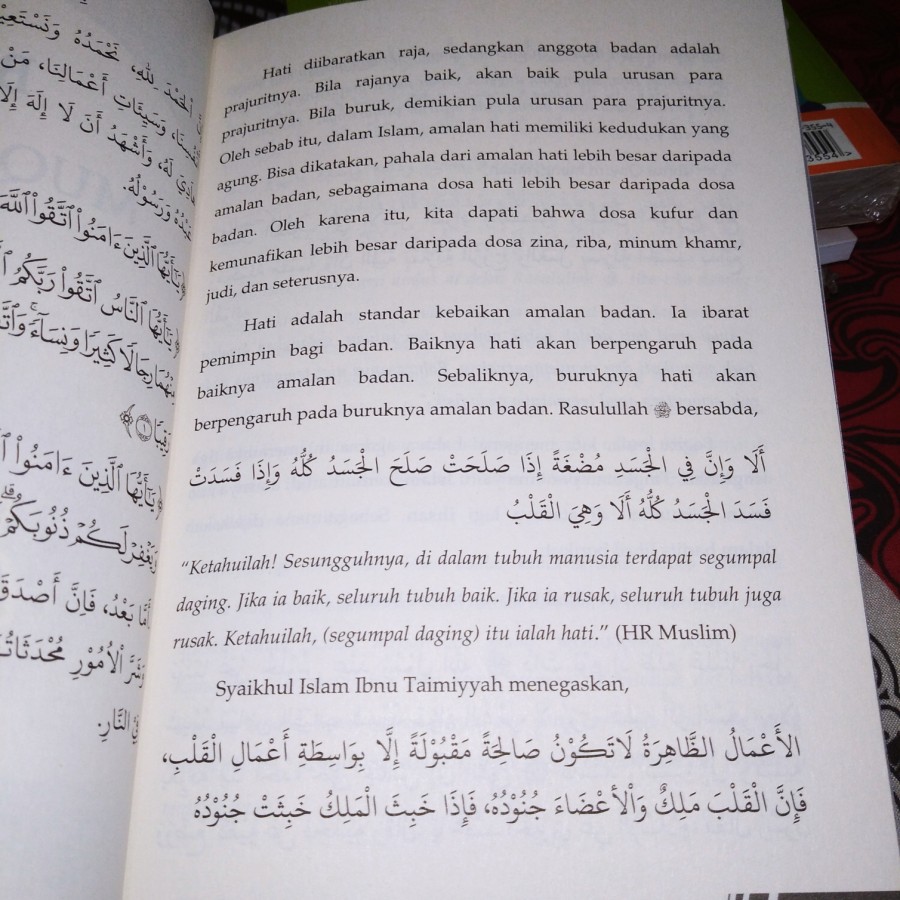 Hati diibaratkan raja, sedangkan anggota badan adalah
prajuritnya. Bila rajanya baik, akan baik pula urusan para
prajuritnya. Bila buruk, demikian pula urusan para prajuritnya.
Oleh sebab itu, dalam Islam, amalan hati memiliki kedudukan yang
agung. Bisa dikatakan, pahala dari amalan hati lebih besar daripada
amalan badan, sebagaimana dosa hati lebih besar daripada dosa
badan. Oleh karena itu, kita dapati bahwa dosa kufur dan
kemunafikan lebih besar daripada dosa zina, riba, minum khamr,
judi, dan seterusnya.
Hati adalah standar kebaikan amalan badan. Ia ibarat
pemimpin bagi badan. Baiknya hati akan berpengaruh pada
baiknya amalan badan. Sebaliknya, buruknya hati akan
berpengaruh pada buruknya amalan badan. Rasulullah ﷺ bersabda,
أَلَا وَإِنَّ فِي الْجَسَدِ مُضْغَةً إِذَا صَلَحَتْ صَلَحَ الْجَسَدُ كُلُّهُ وَإِذَا فَسَدَتْ
فَسَدَ الْجَسَدُ كُلُّهُ أَلَا وَهِيَ الْقَلْبُ
“Ketahuilah! Sesungguhnya, di dalam tubuh manusia terdapat segumpal
daging. Jika ia baik, seluruh tubuh baik. Jika ia rusak, seluruh tubuh juga
rusak. Ketahuilah, (segumpal daging) itu ialah hati.” (HR Muslim)
Syaikhul Islam Ibnu Taimiyyah menegaskan,
الأَعْمَالُ الظَّاهِرَةُ لَاتَكُوْنُ صَالِحَةً مَقْبُوْلَةً إِلَّا بِوَاسِطَةِ أَعْمَالِ الْقَلْبِ،
فَإِنَّ الْقَلْبَ مَلِكٌ وَالْأَعْضَاءَ جُنُوْدُهُ، فَإِذَا خَبِثَ الْمَلِكُ خَبِثَتْ جُنُوْدُهُ
الْحَمْدَ لِلهِ، نَحْمَدُهُ
وَسَيِّئَاتِ أَعْمَالِنَا، مَنْ
لَهُ، وَأَشْهَدُ أَنْ لَا إِلَهَ إِلَّا
وَرَسُوْلُهُ.
يَٰٓأَيُّهَا ٱلَّذِينَ ءَامَنُوا۟ ٱتَّقُوا۟ ٱللَّهَ
يَٰٓأَيُّهَا ٱلنَّاسُ ٱتَّقُوا۟ رَبَّكُمُ
رِجَالًا كَثِيرًا وَنِسَآءً
١
يَٰٓأَيُّهَا ٱلَّذِينَ ءَامَنُوا۟
وَيَغْفِرْ لَكُمْ ذُنُوبَكُمْ
أَمَّا بَعْدُ، فَإِنَّ أَصْدَقَ
وَشَرَّ الْأُمُوْرِ مُحْدَثَاتُ
النَّارِ.